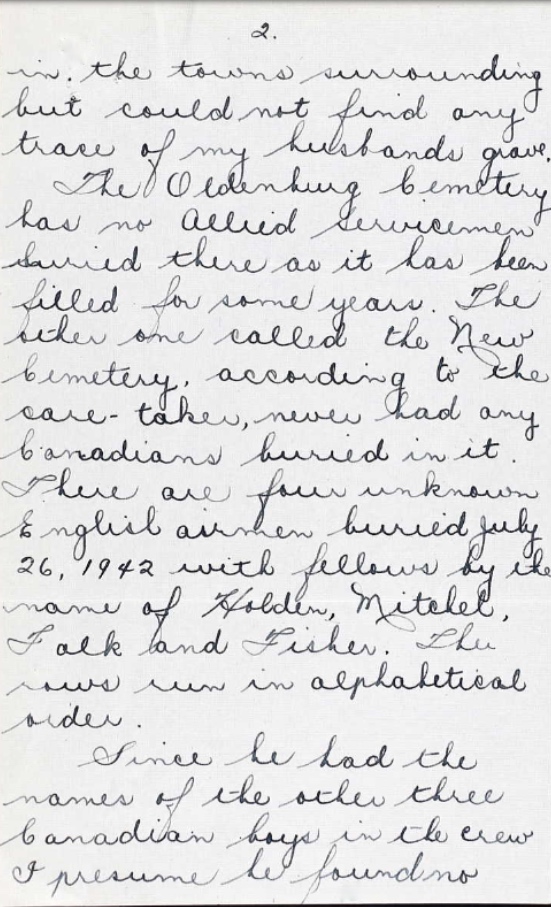 2.
in. the towns surrounding
but could not find any
trace of my husbands grave.
The Oldenburg Cemetery
has no Allied Servicemen
buried there as it has been
filled for some years. The
other one called the New
Cemetery, according to the
care-taker, never had any
Canadians buried in it.
There are four unknown
English airmen buried July
26, 1942 with fellows by the
name of Holden, Mitchel,
Falk and Fisher. The
rows run in alphabetical
order.
Since he had the
names of the other three
Canadian boys in the crew
I presume he found no